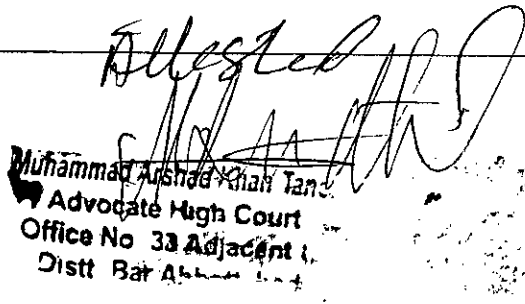 Attested
Muhammad Arshad Khan
Advocate High Court
Office No 33 Adjacent
Distt Bar